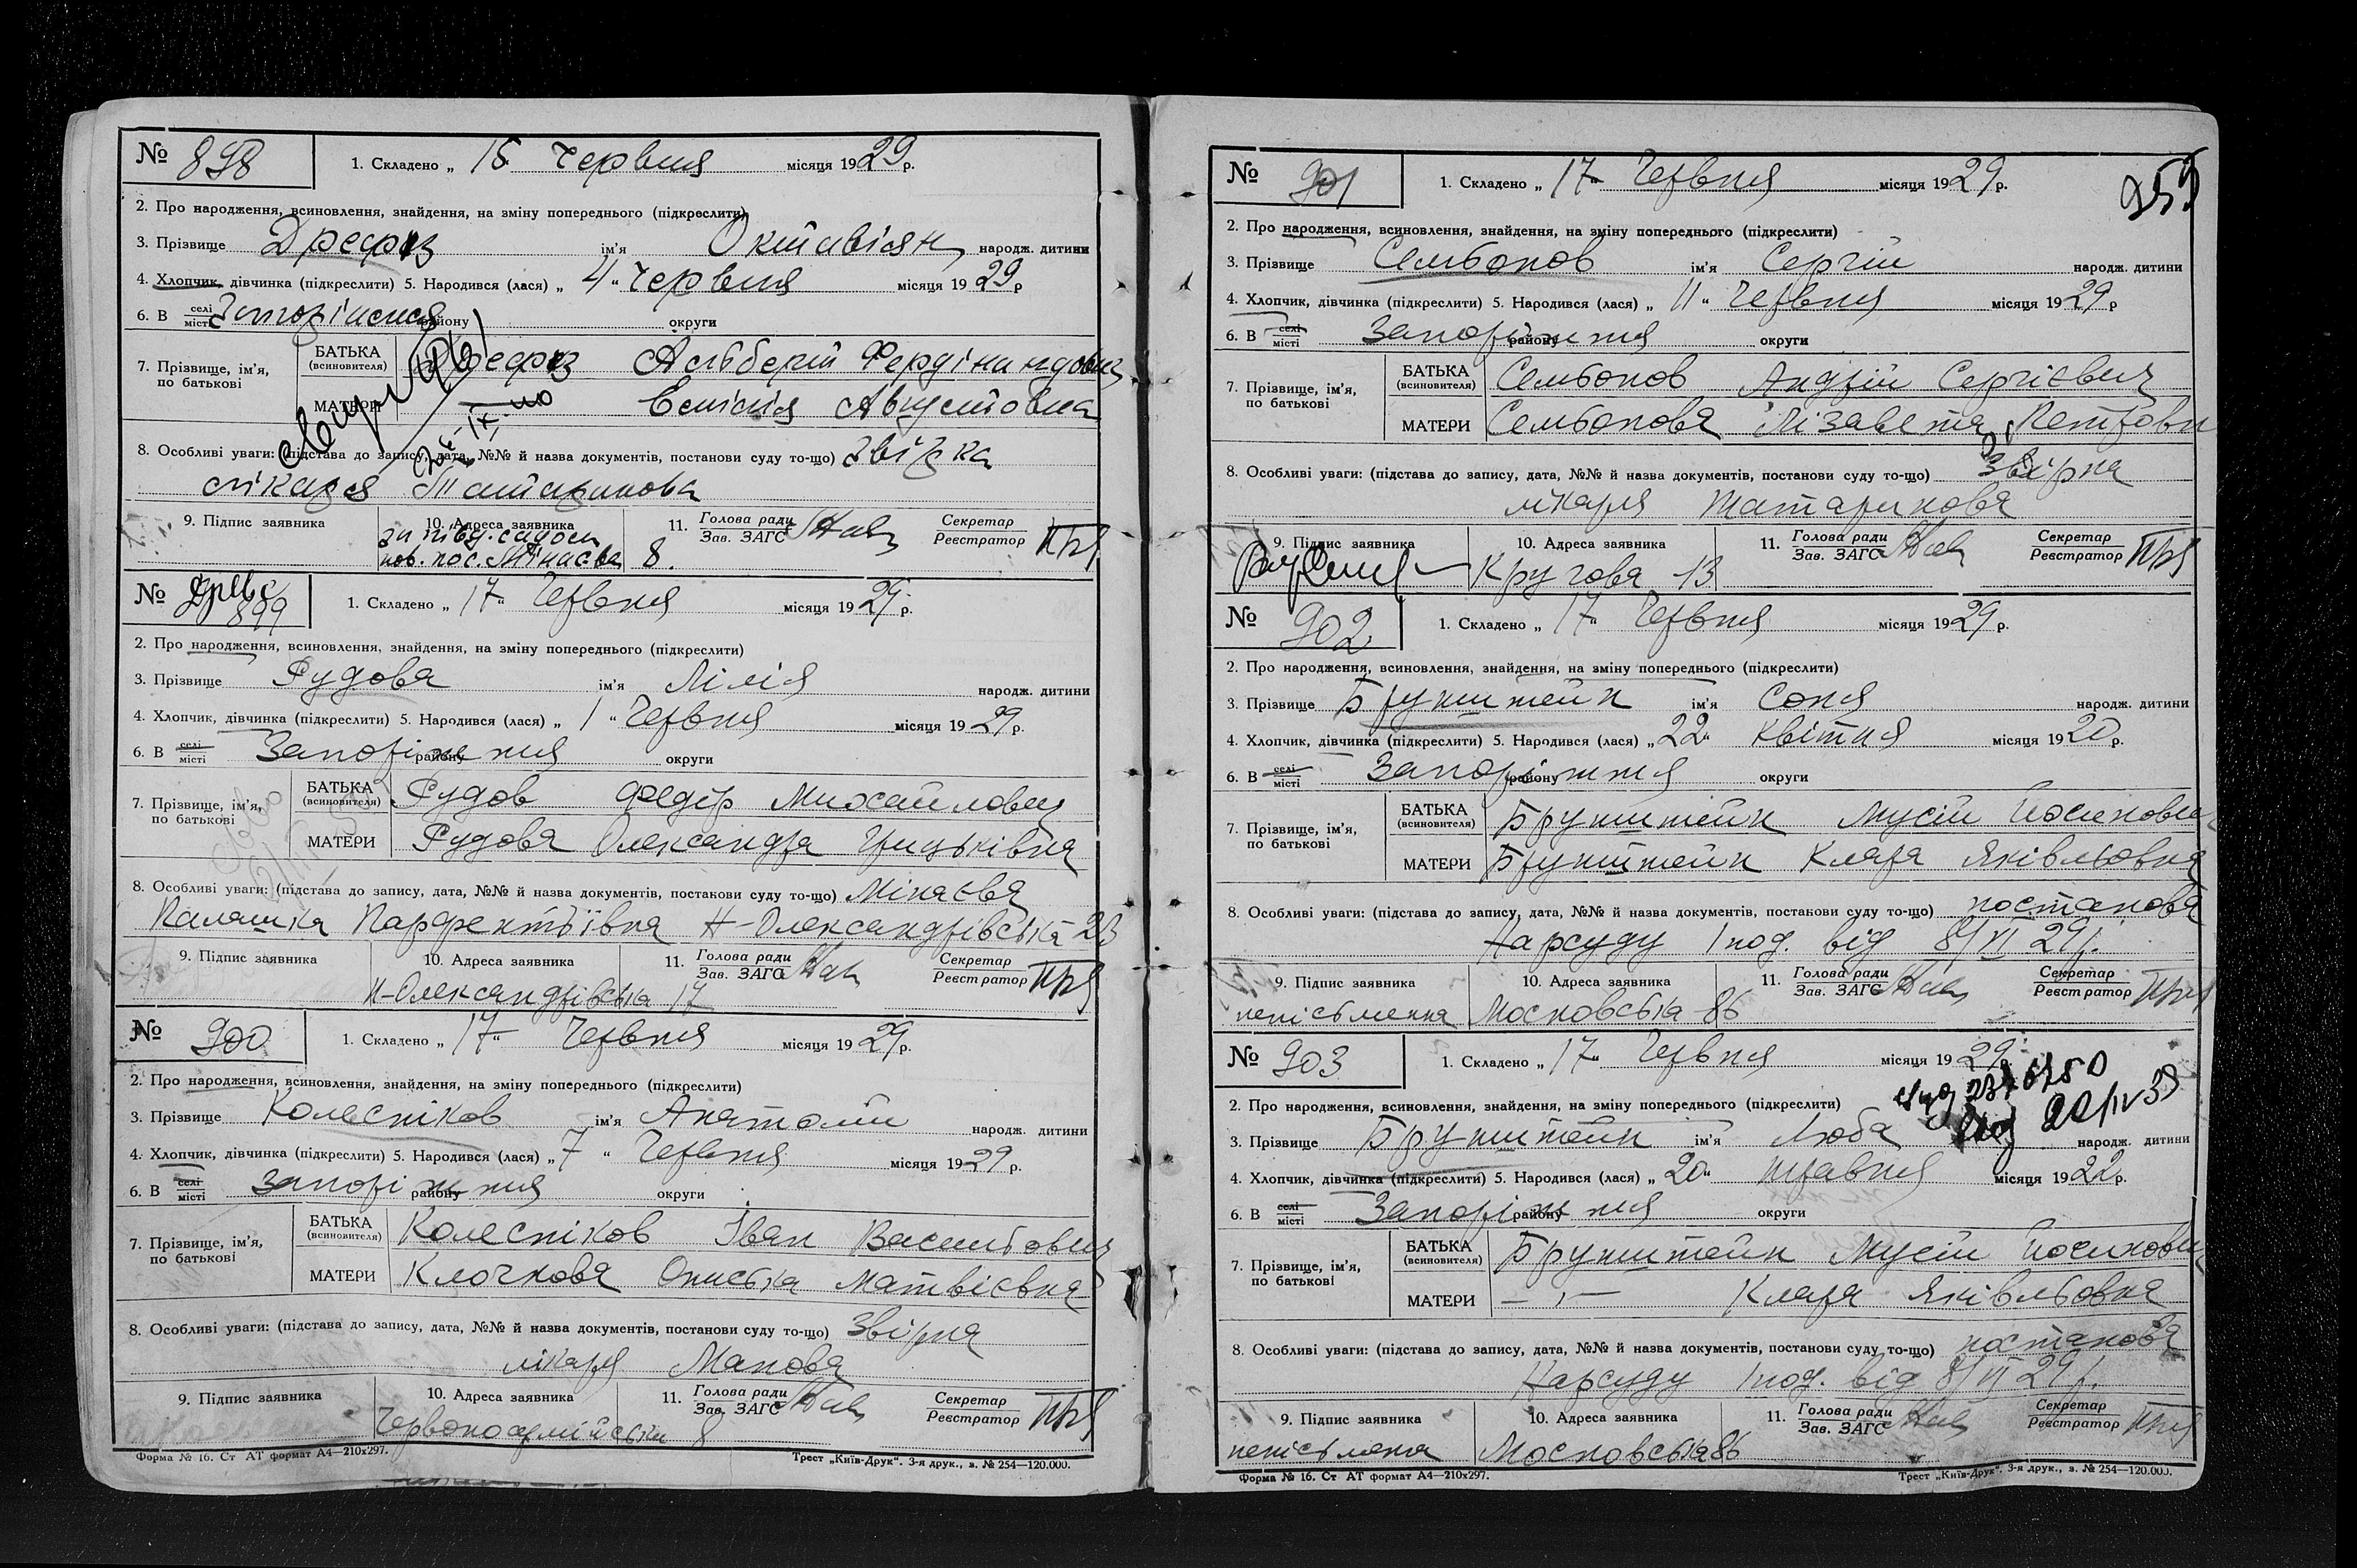 № 898 1. Складено „ 15 Червня місяця 1929 р.
2. Про народження, всиновлення, знайдення, на зміну попереднього (підкреслити)
3. Прізвище Дрефз ім'я Октавіян народж. дитини
4. Хлопчик, дівчинка (підкреслити) 5. Народився (лася) „ 4 " Червня місяця 1929 р
6. В селі місті району округи
7. Прізвище, ім'я, по батькові
БАТЬКА (всиновителя) Дрефз Альберт Фердінандович
МАТЕРИ Емілія Августовна
8. Особливі уваги: (підстава до запису, дата, №№ й назва документів, постанови суду то-що) звірка
лікаря Татаринова
9. Підпис заявника 10. Адреса заявника 11. Голова ради Зав. ЗАГС Секретар Реєстратор
нов. пос. Мінаєва 8.
№ 899 1. Складено „ 17 " Червня місяця 1929 р.
2. Про народження, всиновлення, знайдення, на зміну попереднього (підкреслити)
3. Прізвище Рудова ім'я Лілія народж. дитини
4. Хлопчик, дівчинка (підкреслити) 5. Народився (лася) „ 1 " Червня місяця 1929 р.
6. В селі місті Запоріжжя району округи
7. Прізвище, ім'я, по батькові
БАТЬКА (всиновителя) Рудов Федір Михайлович
МАТЕРИ Рудова Олександра Грицьківна
8. Особливі уваги: (підстава до запису, дата, №№ й назва документів, постанови суду то-що) Мінаєва
Палашка Парфентіївна Н-Олександрівська 23
9. Підпис заявника 10. Адреса заявника 11. Голова ради Зав. ЗАГС Секретар Реєстратор
Н-Олександрівська 17
№ 900 1. Складено „ 17 " Червня місяця 1929 р.
2. Про народження, всиновлення, знайдення, на зміну попереднього (підкреслити)
3. Прізвище Колесніков ім'я Анатолій народж. дитини
4. Хлопчик, дівчинка (підкреслити) 5. Народився (лася) „ 7 " Червня місяця 1929 р.
6. В селі місті Запоріжжя району округи
7. Прізвище, ім'я, по батькові
БАТЬКА (всиновителя) Колесніков Іван Васильович
МАТЕРИ Клочкова Ониська Матвієвна
8. Особливі уваги: (підстава до запису, дата, №№ й назва документів, постанови суду то-що) Звірка
лікаря Манова
9. Підпис заявника 10. Адреса заявника 11. Голова ради Зав. ЗАГС Секретар Реєстратор
Червоноармійська 8
Форма № 16. Ст АТ формат А4—210х297. Трест „Київ-Друк". 3-я друк., з. № 254—120.000.
359
№ 901 1. Складено „ 17 " Червня місяця 1929 р.
2. Про народження, всиновлення, знайдення, на зміну попереднього (підкреслити)
3. Прізвище Сембонов ім'я Сергій народж. дитини
4. Хлопчик, дівчинка (підкреслити) 5. Народився (лася) „ 11 " Червня місяця 1929 р
6. В селі місті Запоріжжя району округи
7. Прізвище, ім'я, по батькові
БАТЬКА (всиновителя) Сембонов Андрій Сергієвич
МАТЕРИ Сембонова Лізавета Петровн
8. Особливі уваги: (підстава до запису, дата, №№ й назва документів, постанови суду то-що) Звірка
лікаря Татаринова
9. Підпис заявника 10. Адреса заявника 11. Голова ради Зав. ЗАГС Секретар Реєстратор
Кругова 13
№ 902 1. Складено „ 17 " Червня місяця 1929 р.
2. Про народження, всиновлення, знайдення, на зміну попереднього (підкреслити)
3. Прізвище Брунштейн ім'я Соня народж. дитини
4. Хлопчик, дівчинка (підкреслити) 5. Народився (лася) „ 22 " Квітня місяця 1920 р.
6. В селі місті Запоріжжя району округи
7. Прізвище, ім'я, по батькові
БАТЬКА (всиновителя) Брунштейн Мусій Йосипович
МАТЕРИ Брунштейн Клара Яківльовна
8. Особливі уваги: (підстава до запису, дата, №№ й назва документів, постанови суду то-що) постанова
Нарсуду 1 под. від 8/VI 29 р.
9. Підпис заявника 10. Адреса заявника 11. Голова ради Зав. ЗАГС Секретар Реєстратор
непісьменна Московська 86
№ 903 1. Складено „ 17 " Червня місяця 1929 р.
2. Про народження, всиновлення, знайдення, на зміну попереднього (підкреслити)
3. Прізвище Брунштейн ім'я Люба народж. дитини
4. Хлопчик, дівчинка (підкреслити) 5. Народився (лася) „ 20 " травня місяця 1922 р.
6. В селі місті Запоріжжя району округи
7. Прізвище, ім'я, по батькові
БАТЬКА (всиновителя) Брунштейн Мусій Йосипович
МАТЕРИ — " — Клара Яківльовна
8. Особливі уваги: (підстава до запису, дата, №№ й назва документів, постанови суду то-що) постанова
Нарсуду 1 под. від 8/VI 29 р.
9. Підпис заявника 10. Адреса заявника 11. Голова ради Зав. ЗАГС Секретар Реєстратор
непісьменна Московська 86
Форма № 16. Ст АТ формат А4—210х297. Трест „Київ-Друк". 3-я друк., з. № 254—120.000.